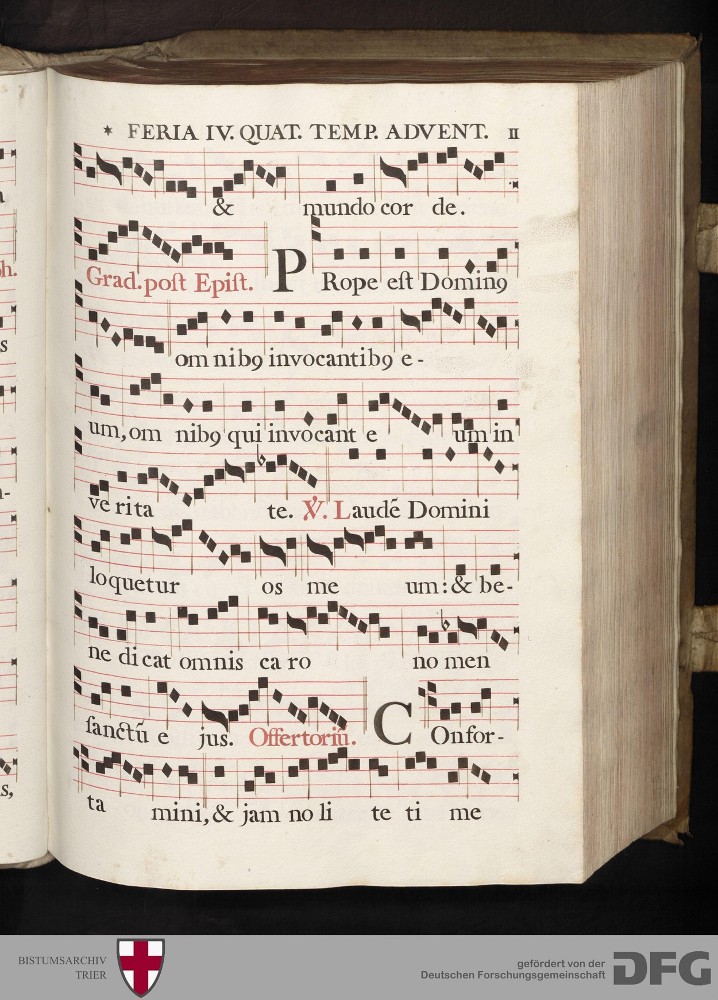 * FERIA IV. QUAT. TEMP. ADVENT. II
& mundo cor de.
Grad. poſt Epiſt. PRope eſt Dominꝯ
om nibꝯ invocantibꝯ e -
um, om nibꝯ qui invocant e um in
ve rita te. ℣. Laudē Domini
loquetur os me um: & be-
ne di cat omnis ca ro no men
ſanctū e jus. Offertoriū. COnfor-
ta mini, & jam no li te ti me
h.
s
s,
BISTUMSARCHIV
TRIER
gefördert von der
Deutschen Forschungsgemeinschaft
DFG